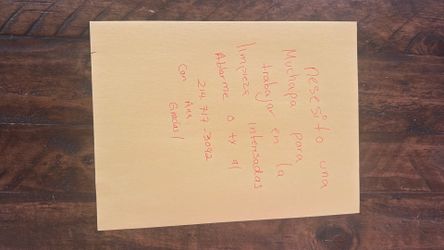 nesesito una
Muchapa para
trabajar en la
limpieza intensadas
Ablarme o tx al
214 717-3092
Con Ana.
Gracias!